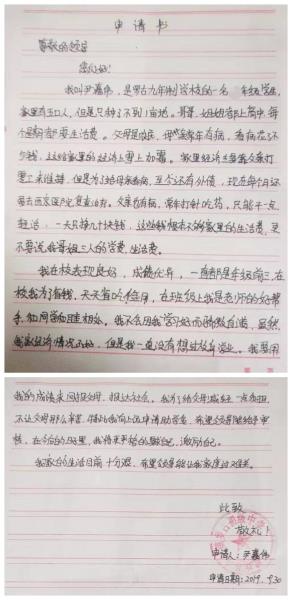 申请书
尊敬的领导
您们好!
我叫尹嘉伟,是罗古九年制学校的一名 年级学生,
家里有五口人,但是只种了不到1亩地。哥哥、姐姐都上高中,每
个星期都要生活费。父母是农民,母亲常年有病,看病在外
欠钱,这给家里的经济上雪上加霜。家里经济主要靠父亲打
零工来维持,但是为了给母亲看病,至今还有外债,现在每个月还
要去 医院化验复查。父亲也有病,常年打针吃药,只能干一点
轻活,一天只挣几十块钱,这些钱根本不够家里的生活费,更
不要说我哥姐三人的学费、生活费。
我在校表现良好,成绩优异,一直都是年级前三,在
校我为了省钱,天天省吃俭用,在班级上我是老师的好帮
手,和同学们互相 。我不会因我学习好而骄傲自满,虽然
我家经济情况不好,但是我一直没有想过放弃学业。我要用
我的成绩来回报父母,报达社会。我为了给父母减轻一点负担,
不让父母那么辛苦,特此我向上级申请助学金,希望领导能给予审
核,在今后的日子里,我将更严格的要求自己,激励自己。
我家的生活目前十分艰 ,希望领导能让我家度过难关。
此致
敬礼!
申请人:尹嘉伟
申请日期:2019.9.30